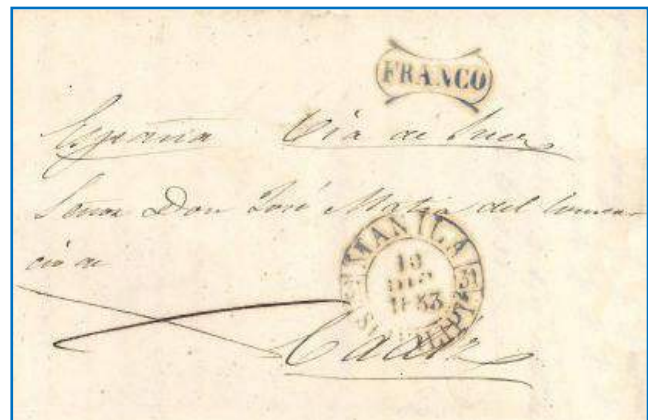 FRANCO
España Via de Suez
Señor Don José Matia del Comer-
cio de
MANILA
31
1853
Cadiz